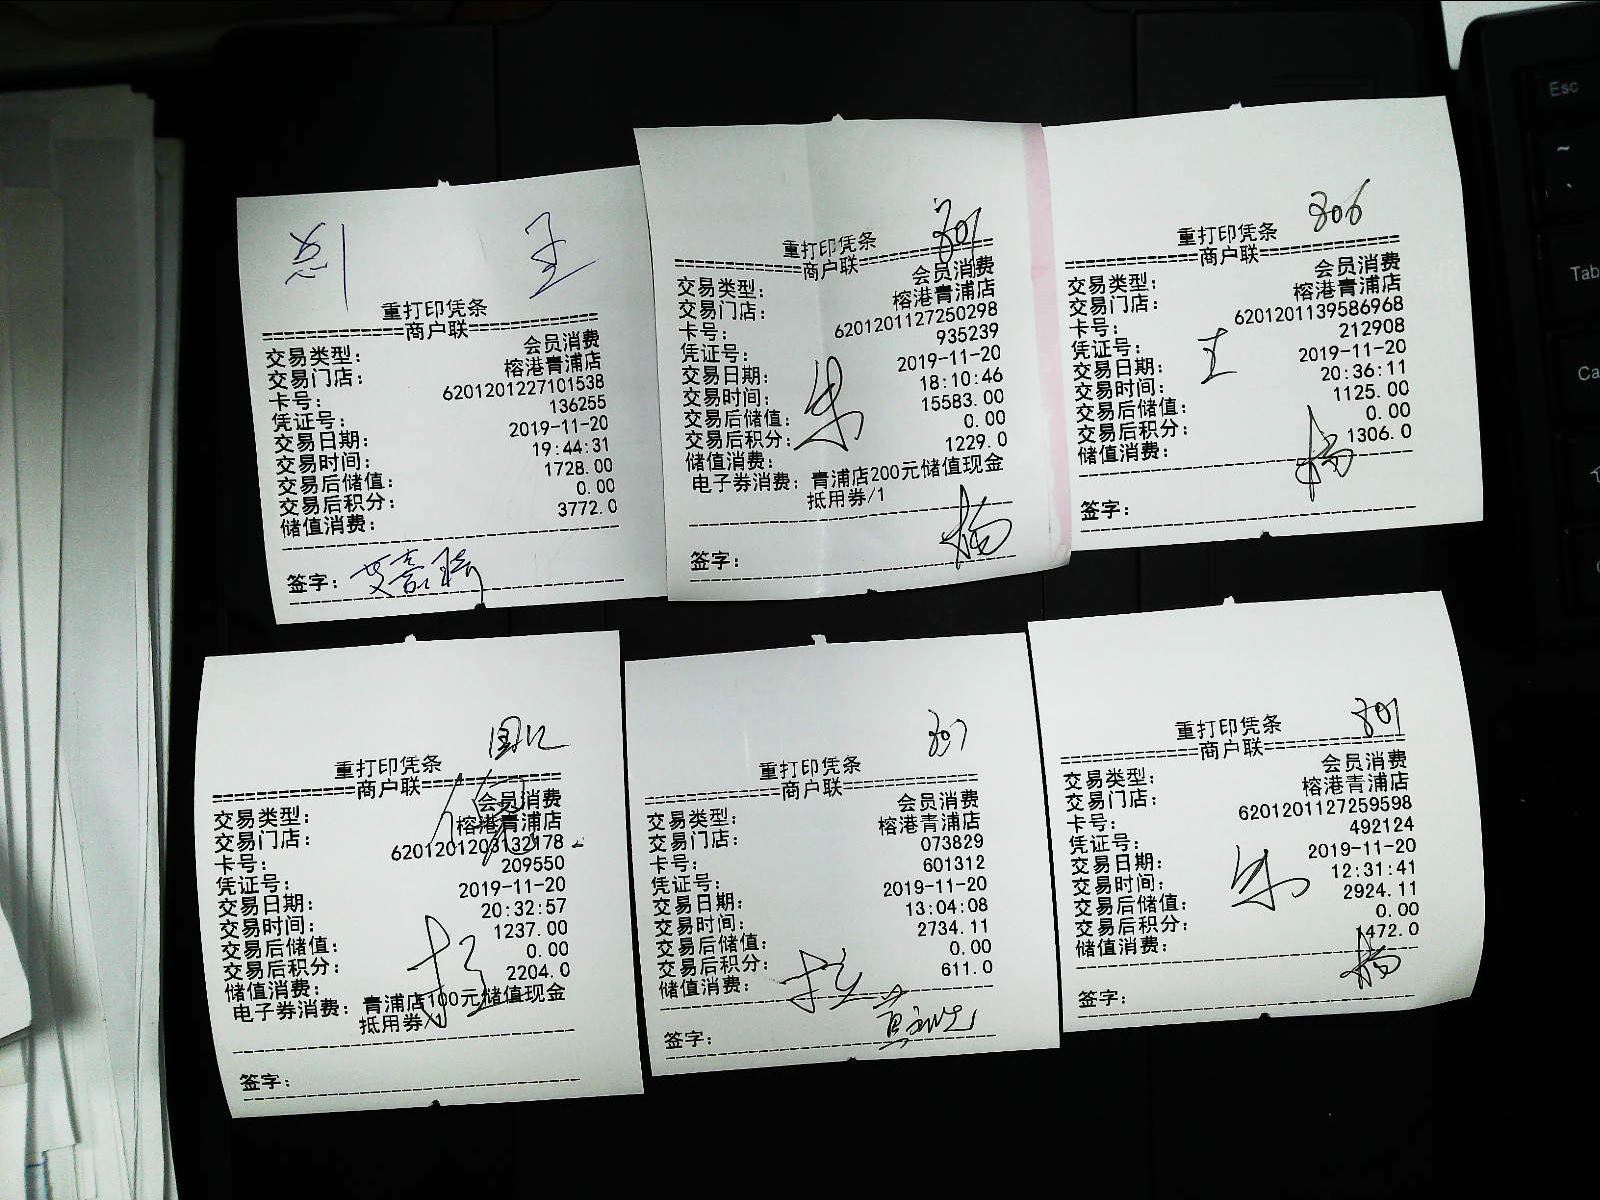 重打印凭条
==============商户联==============
交易类型： 会员消费
交易门店： 榕港青浦店
卡号： 6201201227101538
凭证号： 136255
交易日期： 2019-11-20
交易时间： 19:44:31
交易后储值： 1728.00
交易后积分： 0.00
储值消费： 3772.0
签字：
801
重打印凭条
==============商户联==============
交易类型： 会员消费
交易门店： 榕港青浦店
卡号： 6201201127250298
凭证号： 935239
交易日期： 2019-11-20
交易时间： 18:10:46
交易后储值： 15583.00
交易后积分： 0.00
储值消费： 1229.0
电子券消费： 青浦店200元储值现金
抵用券/1
杨
签字：
806
重打印凭条
==============商户联==============
交易类型： 会员消费
交易门店： 榕港青浦店
卡号： 6201201139586968
凭证号： 212908
交易日期： 2019-11-20
交易时间： 20:36:11
交易后储值： 1125.00
交易后积分： 0.00
储值消费： 1306.0
王
杨
签字：
重打印凭条
==============商户联==============
交易类型： 会员消费
交易门店： 榕港青浦店
卡号： 6201201203132178
凭证号： 209550
交易日期： 2019-11-20
交易时间： 20:32:57
交易后储值： 1237.00
交易后积分： 0.00
储值消费： 2204.0
电子券消费： 青浦店100元储值现金
抵用券/1
签字：
807
重打印凭条
==============商户联==============
交易类型： 会员消费
交易门店： 榕港青浦店
卡号： 073829
凭证号： 601312
交易日期： 2019-11-20
交易时间： 13:04:08
交易后储值： 2734.11
交易后积分： 0.00
储值消费： 611.0
签字：
801
重打印凭条
==============商户联==============
交易类型： 会员消费
交易门店： 榕港青浦店
卡号： 6201201127259598
凭证号： 492124
交易日期： 2019-11-20
交易时间： 12:31:41
交易后储值： 2924.11
交易后积分： 0.00
储值消费： 1472.0
杨
签字：
Esc
~
Tab